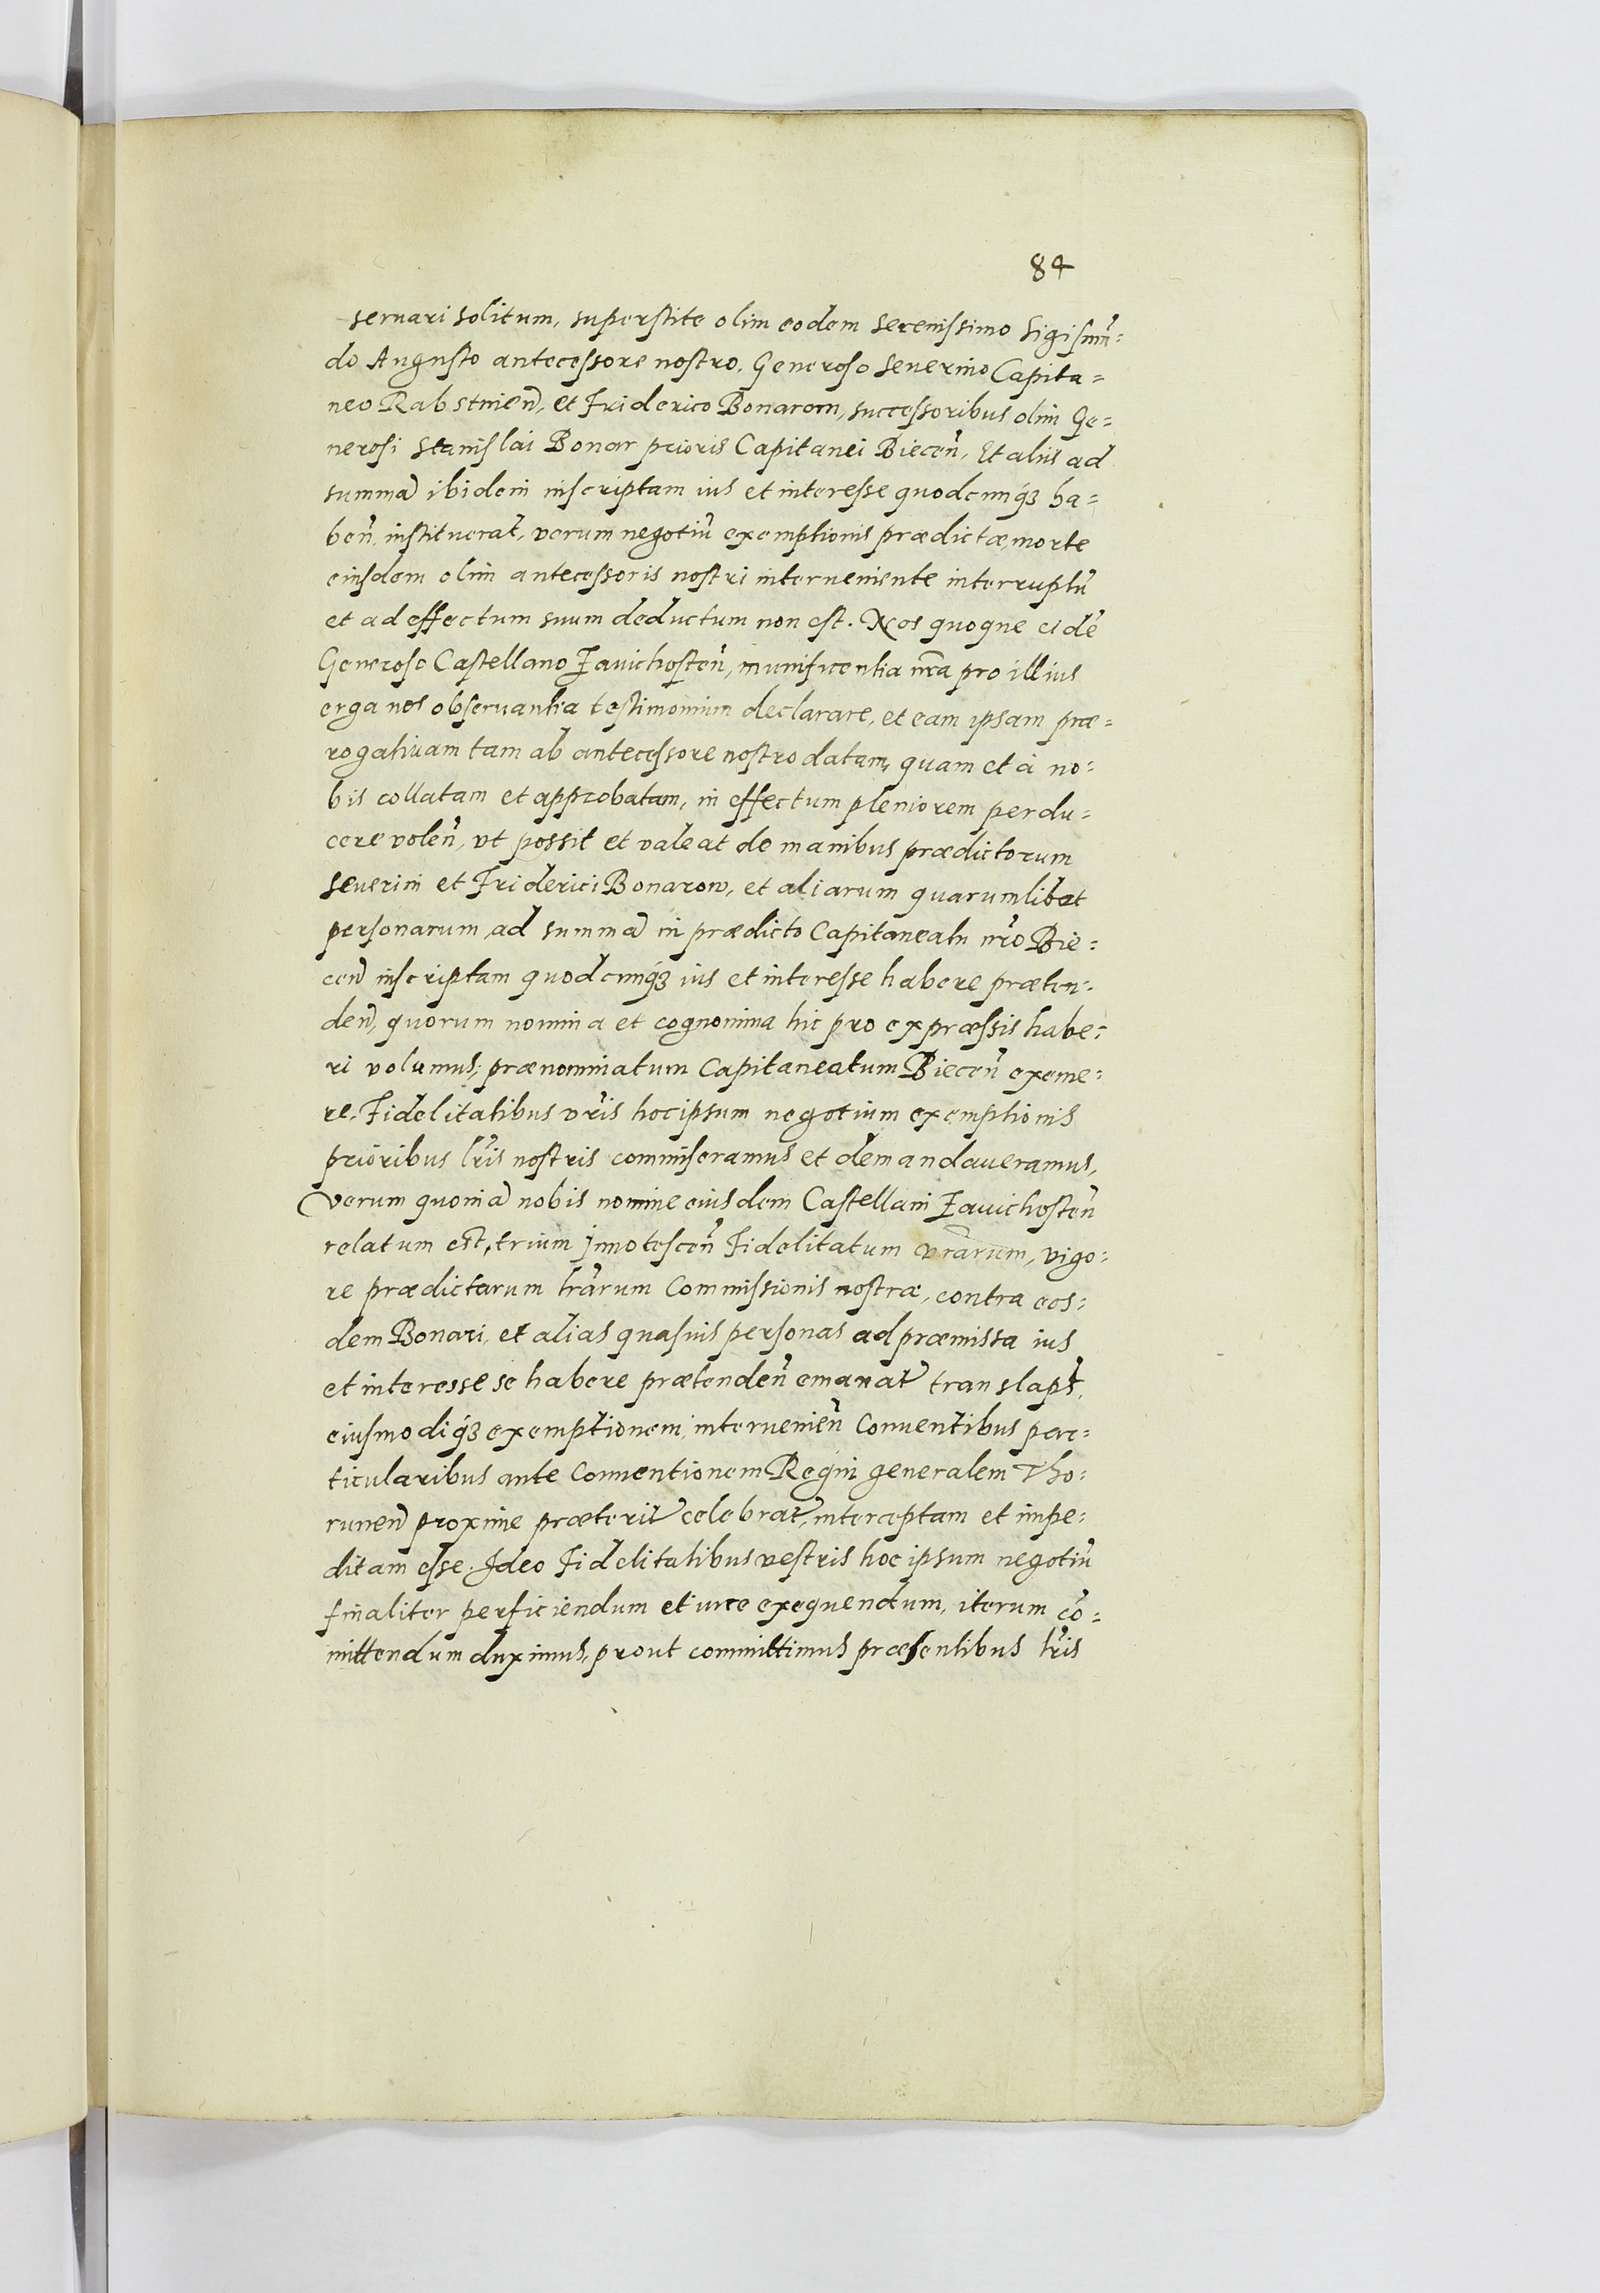 84
seruari solitum, superstite olim eodem Serenissimo Sigismũ=
do Augusto antecessore nostro, Generoso Seuerino Capita=
neo Rabstinen̄, et Friderico Bonarom, successoribus olim Ge=
nerosi Stanislai Bonar prioris Capitanei Biecen̄, Et aliis ad
summã ibidem inscriptam ius et interesse quodcunq́ꝫ ha=
ben̄ instituerat, verum negotiũ exemptionis prædictæ, morte
eiusdem olim antecessoris nostri interueniente interruptũ
et ad effectum suum deductum non est. Nos quoque eidẽ
Generoso Castellano Zauichosten̄, munificentia nr̃a pro illius
erga nos obseruantia testimonium declarare, et eam ipsam præ=
rogatiuam tam ab antecessore nostro datam, quam et à no=
bis collatam et approbatam, in effectum pleniorem perdu=
cere volen̄, vt possit et valeat de manibus prædictorum
Seuerini et Friderici Bonarow, et aliarum quarumlibet
personarum ad summã in prædicto Capitaneatu nr̃o Bie=
cen̄ inscriptam quodcunq́ꝫ ius et interesse habere præten=
den̄, quorum nomina et cognomina hic pro expræssis habe=
ri volumus, prænominatum Capitaneatum Biecen̄ exime=
re. Fidelitatibus vr̃is hoc ipsum negotium exemptionis
prioribus lr̃is nostris commiseramus et demandaueramus,
Verum quoniã nobis nomine eiusdem Castellani Zauichosten̄
relatum est, trium Innotescen̄ Fidelitatum vr̃arum, vigo=
re prædictarum lr̃arum Commissionis nostræ, contra eos=
dem Bonari, et alias quasuis personas ad præmissa ius
et interesse se habere prætenden̄ emanat̃ translaps̃,
eiusmodiq́ꝫ exemptionem, interuenien̄ Conuentibus par=
ticularibus ante Conuentionem Regni generalem Tho=
runen̄ proxime præterit̃ celebrat̃, interceptam et impe=
ditam esse. Ideo Fidelitatibus vestris hoc ipsum negotiũ
finaliter perficiendum et iure exequendum, iterum cõ=
mittendum duximus, prout committimus præsentibus lr̃is